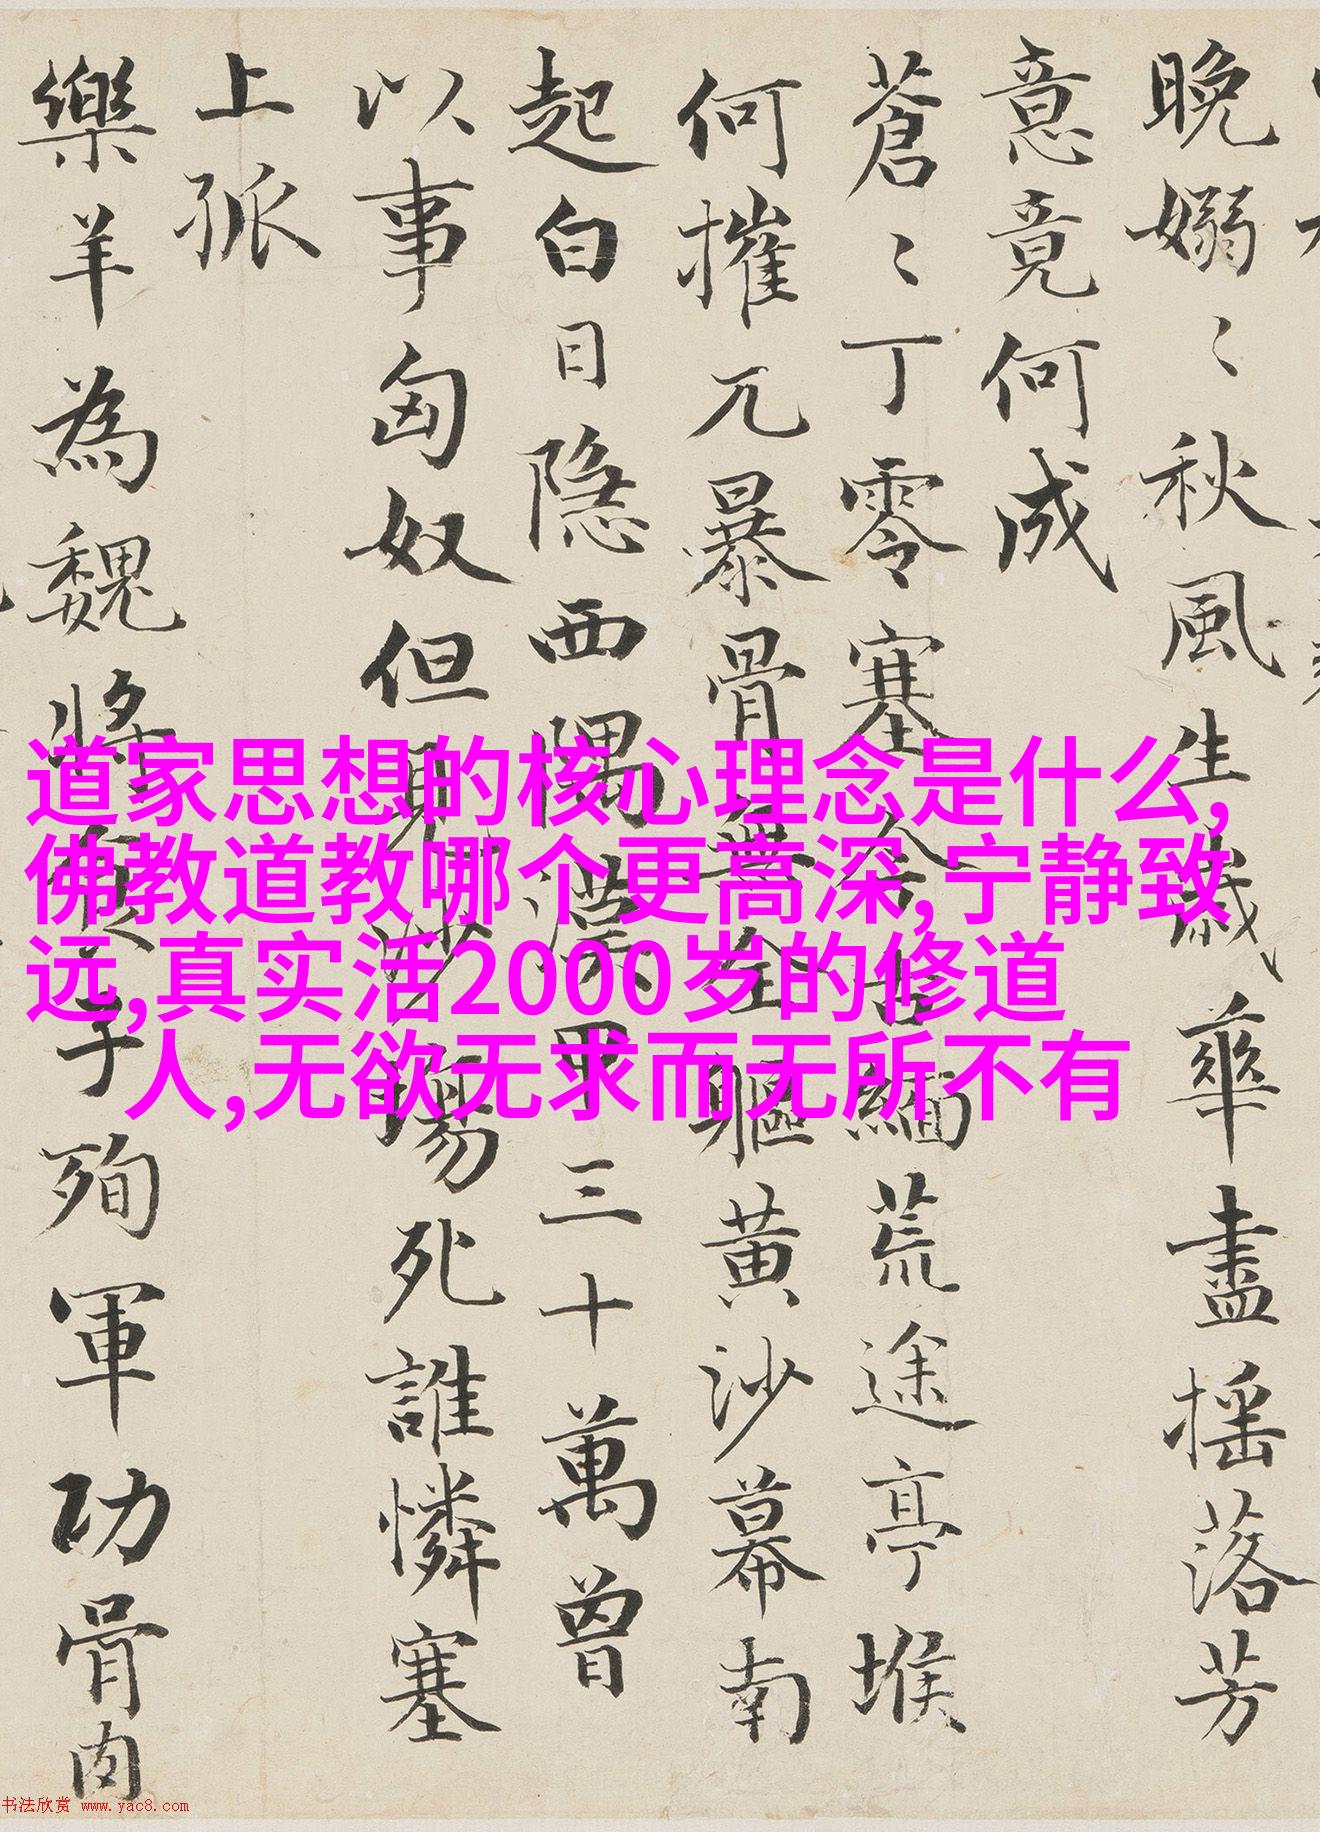 道家思想的核心理念是什么,
佛教道教哪个更高深,宁静致
远,真实活2000岁的修道
人,无欲无求而无所不有
晚嫋〻秋風生歲華盡摇落芳
意竟何成
蒼〻丁零塞今古緬荒途亭堠
何摧兀暴骨無全軀黄沙幕南
起白日隐西隅漢甲三十萬曾
以事匈奴但見沙場死誰憐塞
上孤
樂羊為魏將食子殉軍功骨肉
书法欣赏 www.yac8.com